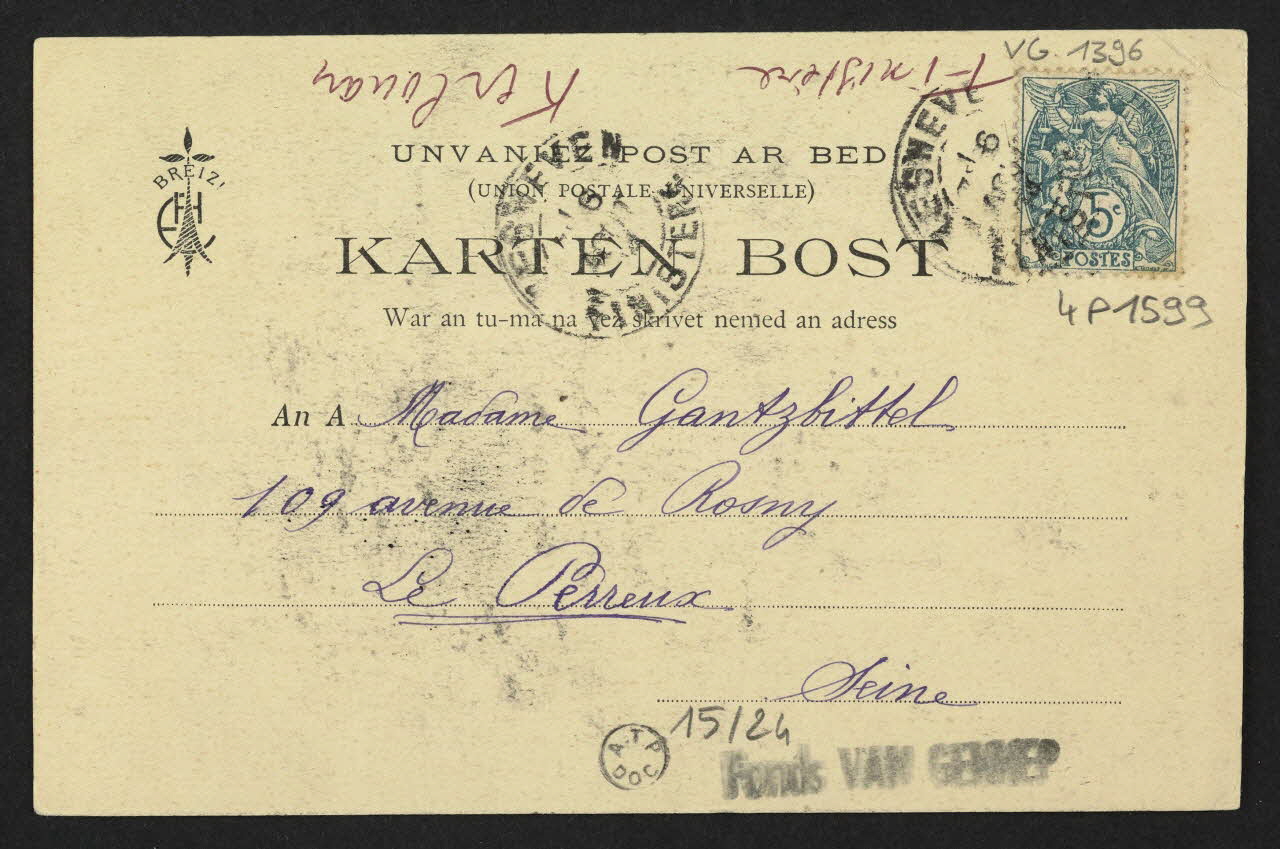 VG. 1396
Finistère
Kerlouan
BREIZ!
UNVANIEZ POST AR BED
(UNION POSTALE UNIVERSELLE)
KARTEN BOST
War an tu-ma na vez skrivet nemed an adress
LESNEVEN
FINISTERE
5c
POSTES
4P1599
An A Madame Gantzbittel
109 avenue de Rosny
Le Perreux
Seine
15/24
A.T.P
DOC
Fonds VAN GENNEP